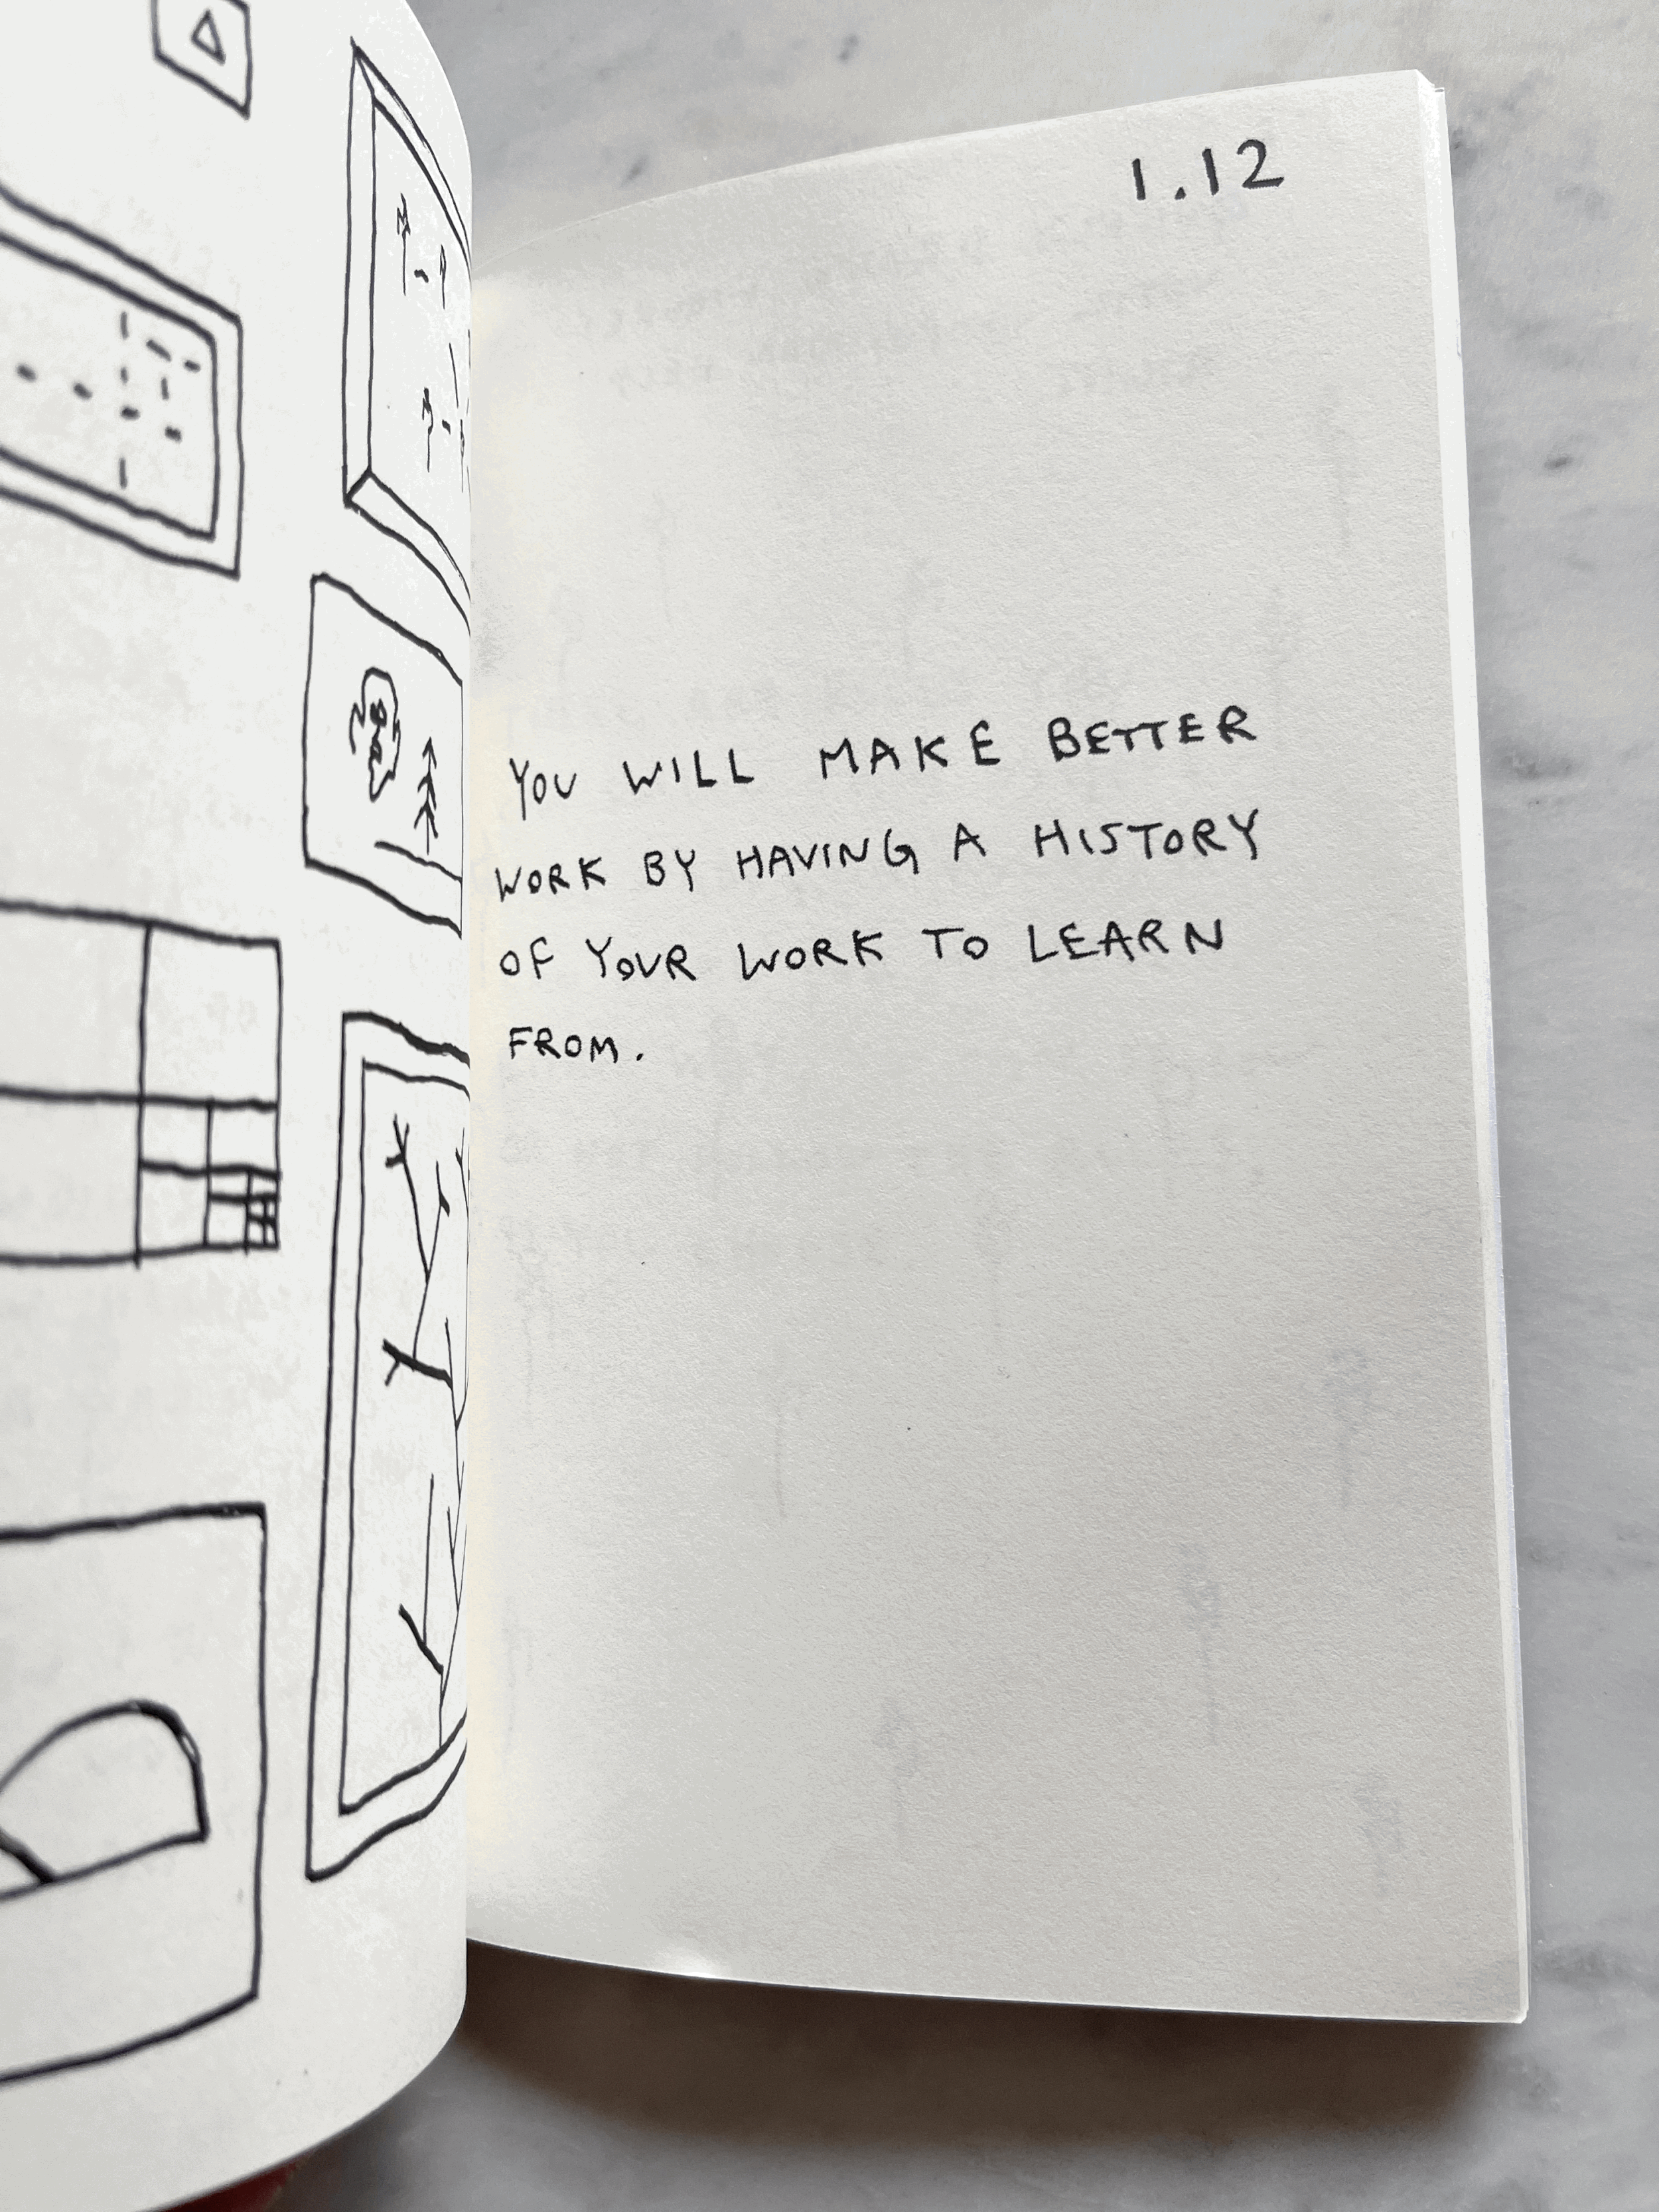 1.12
YOU WILL MAKE BETTER
WORK BY HAVING A HISTORY
OF YOUR WORK TO LEARN
FROM.